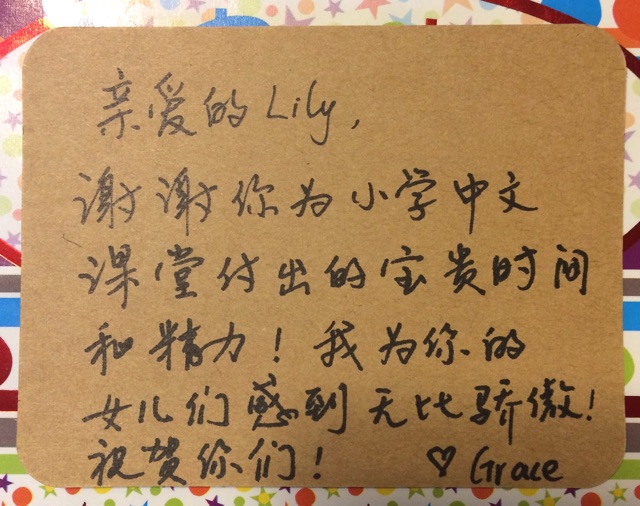 亲爱的 Lily,
谢谢你为小学中文
课堂付出的宝贵时间
和精力！我为你的
女儿们感到无比骄傲！
祝贺你们！ ♡ Grace